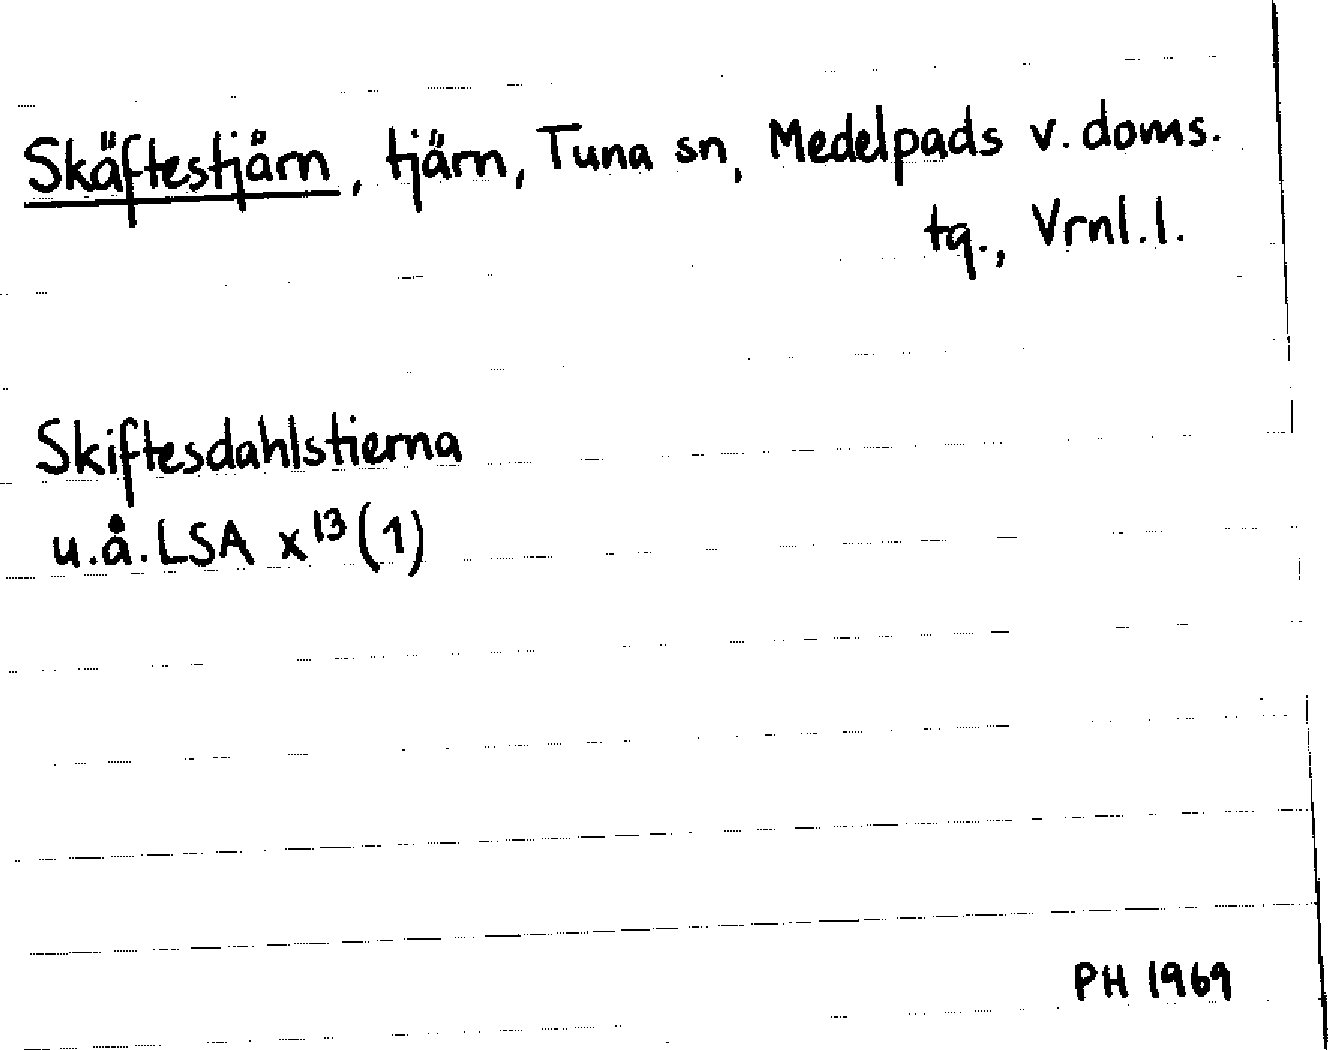 Skäftestjärn, tjärn, Tuna sn, Medelpads v. doms.
tg., Vrnl. l.
Skiftesdahlstierna
u.å. LSA x¹³(1)
PH 1969